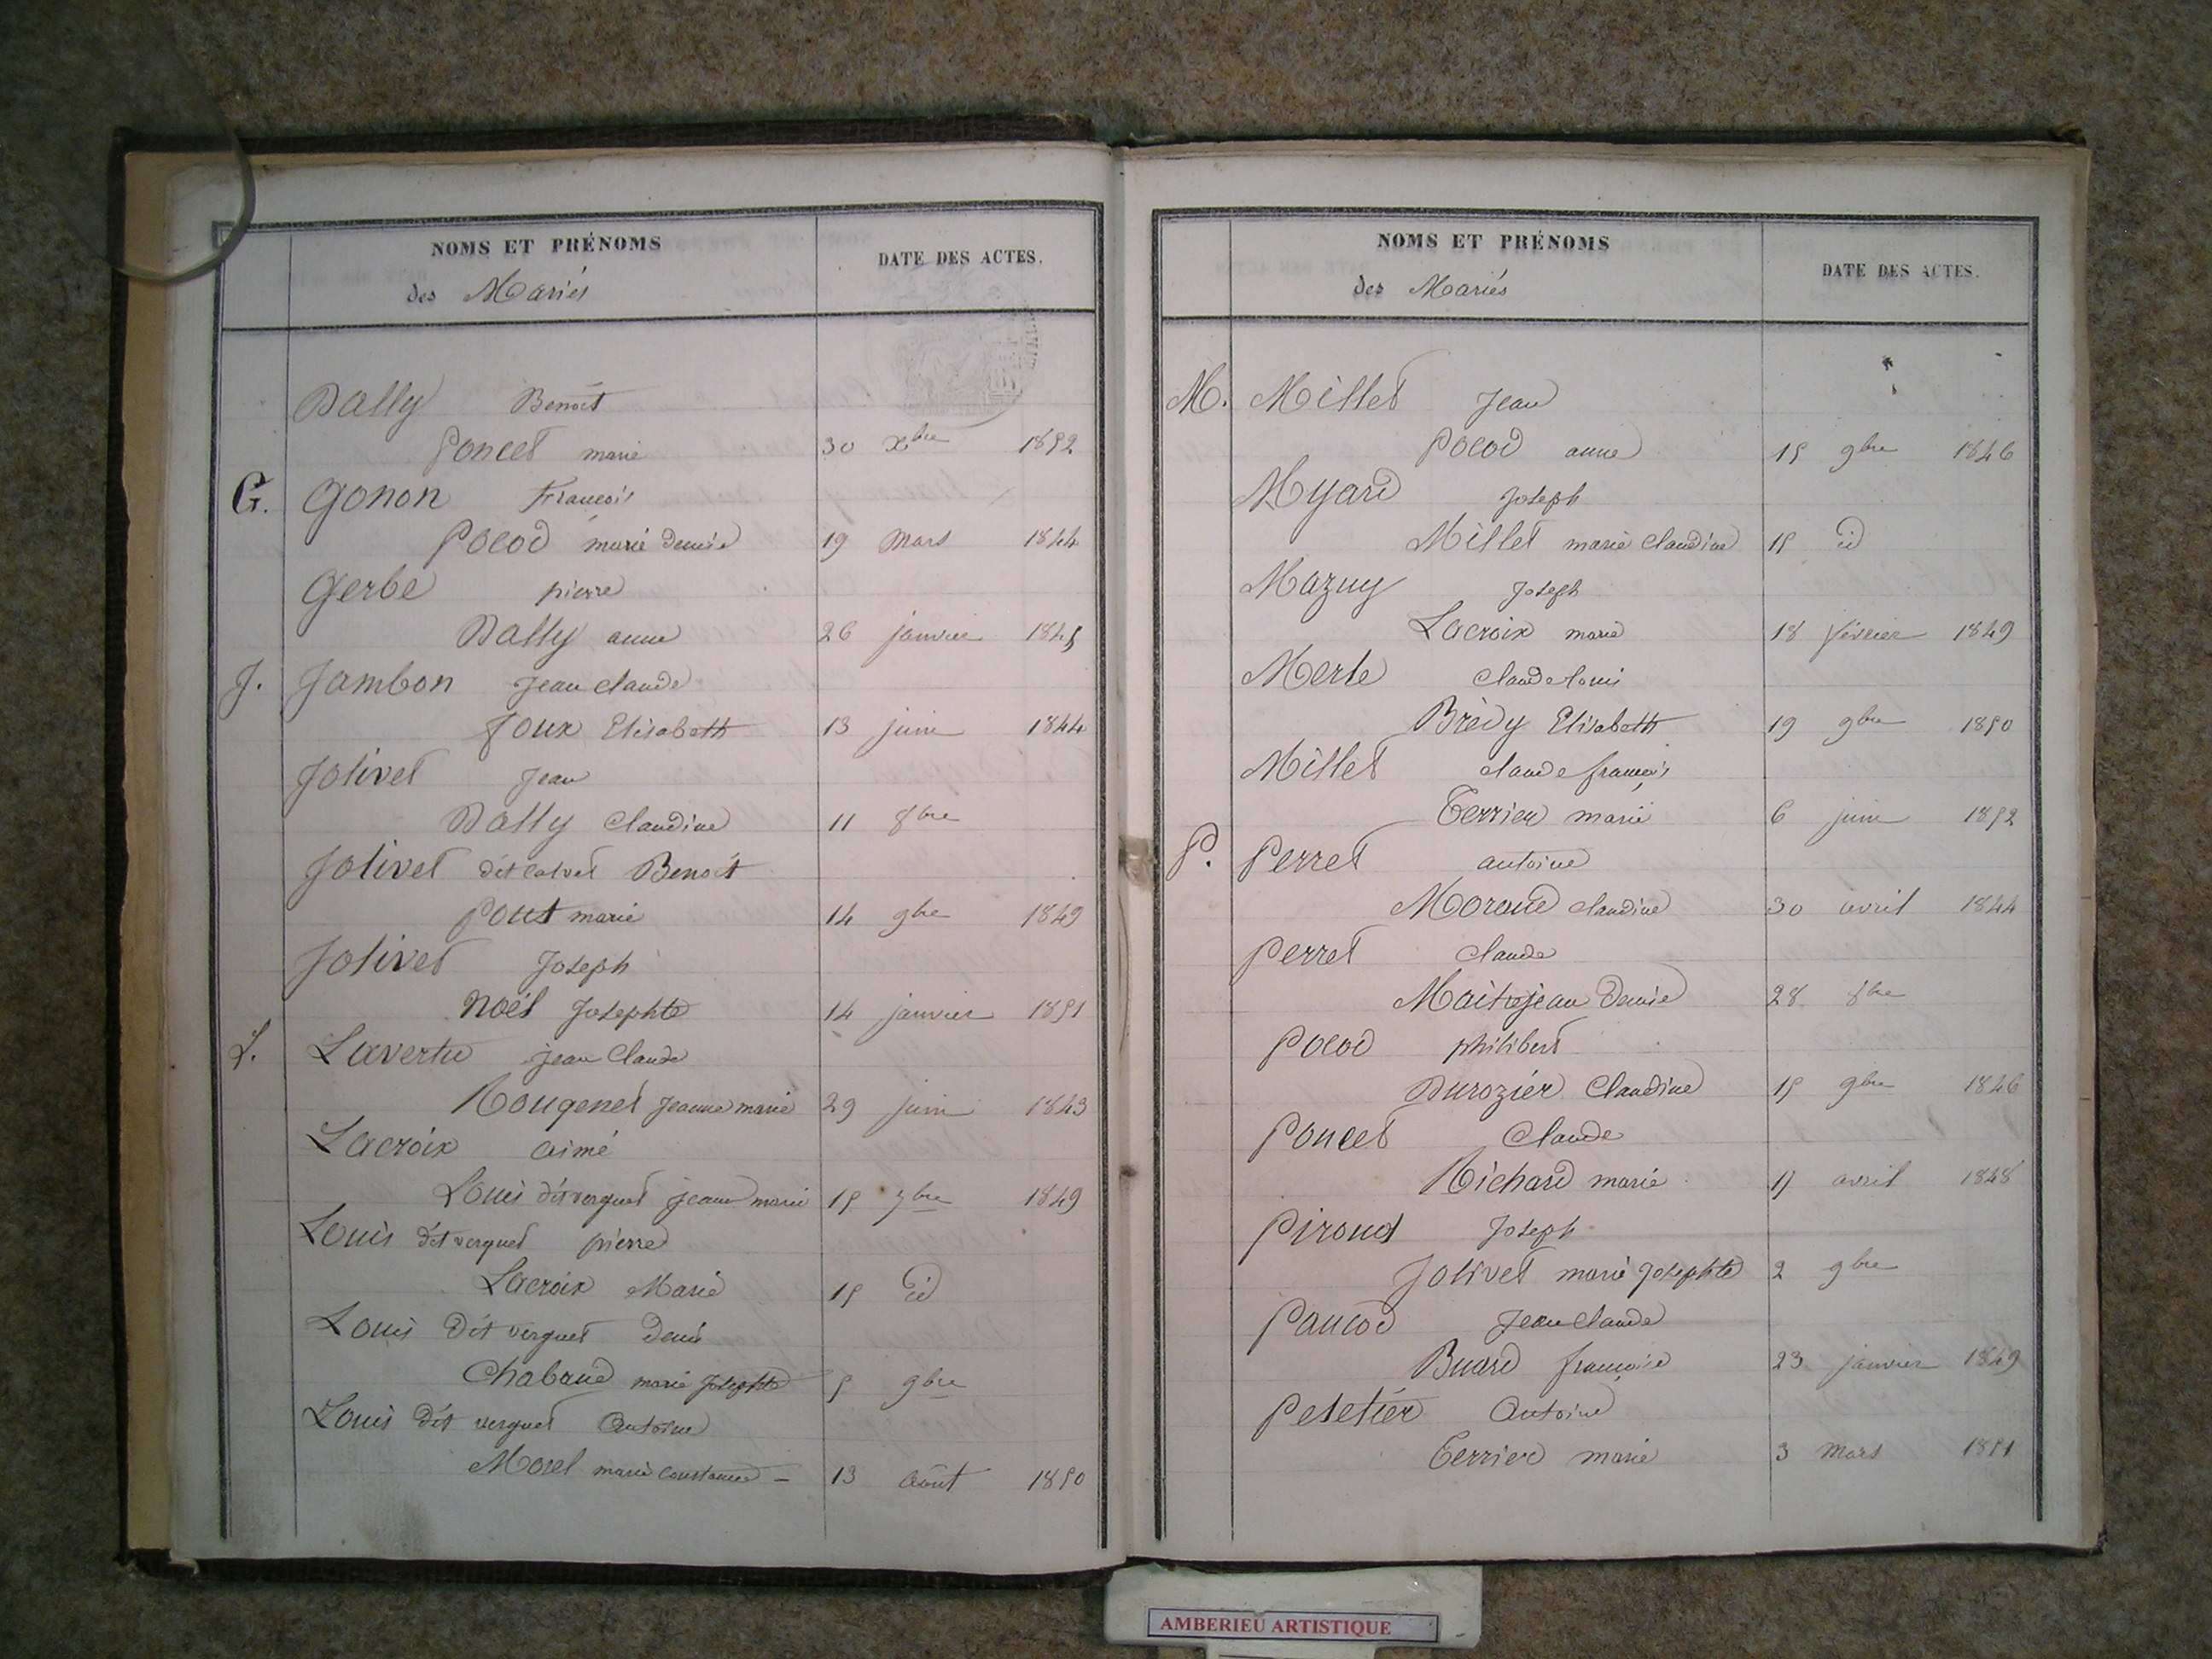 NOMS ET PRÉNOMS
des Mariés
DATE DES ACTES.
Dally Benoit
Poncet marie 30 Xbre 1852
G. Gonon François
Pocod marie denise 19 Mars 1844
Gerbe pierre
Dally anne 26 janvier 1845
J. Jambon Jean claude
Joux Elisabeth 13 juin 1844
Jolivet Jean
Dally Claudine 11 8bre
Jolivet dit calvet Benoit
Pont marie 14 9bre 1849
Jolivet Joseph
Noël Josephte 14 janvier 1851
L. Lavertu Jean Claude
Rougenet Jeanne marie 29 juin 1843
Lacroix aimé
Louis dit verguet jeanne marie 15 9bre 1849
Louis dit verguet pierre
Lacroix Marie 15 id
Louis dit verguet Denis
Chabaud marie Josephte 5 9bre
Louis dit verguet Antoine
Morel marie constance - 13 Août 1850
NOMS ET PRÉNOMS
des Mariés
DATE DES ACTES.
M. Millet Jean
Pocod anne 15 9bre 1846
Myard Joseph
Millet marie Claudine 15 id
Mazuy Joseph
Lacroix marie 18 février 1849
Merle Claude louis
Brédy Elisabeth 19 9bre 1850
Millet claude françois
Terrier marie 6 juin 1852
P. Perret antoine
Moraud claudine 30 avril 1844
Perret Claude
Maitrejean Denise 28 8bre
Pocod philibert
Durozier Claudine 15 9bre 1846
Poncet Claude
Richard marie avril 1848
Piroud Joseph
Jolivet marie Josephte 2 9bre
Paucod Jean Claude
Buard françoise 23 janvier 1849
Peletier Antoine
Terrier marie 3 Mars 1851
AMBERIEU ARTISTIQUE